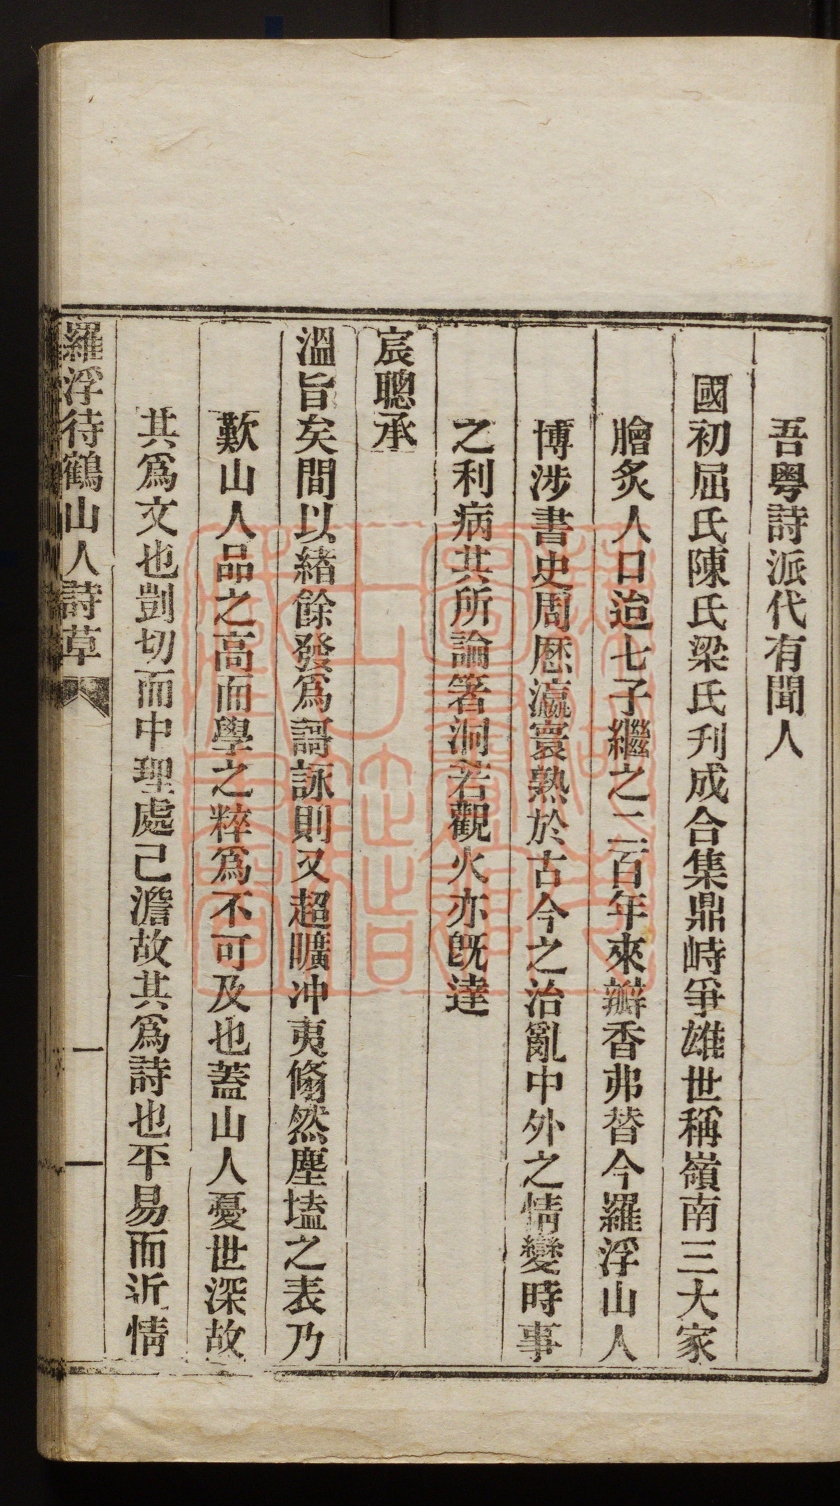 吾粵詩派代有聞人
國初屈氏陳氏梁氏刋成合集鼎峙爭雄世稱嶺南三大家
膾炙人口迨七子繼之二百年來瓣香弗替今羅浮山人
博涉書史周歷瀛寰熟於古今之治亂中外之情變時事
之利病其所論箸洞若觀火亦旣達
宸聰承
溫旨矣間以緒餘發爲謌詠則又超曠冲夷翛然塵壒之表乃
歎山人品之高而學之粹爲不可及也蓋山人憂世深故
其爲文也剴切而中理處己澹故其爲詩也平易而近情
羅浮待鶴山人詩草
一